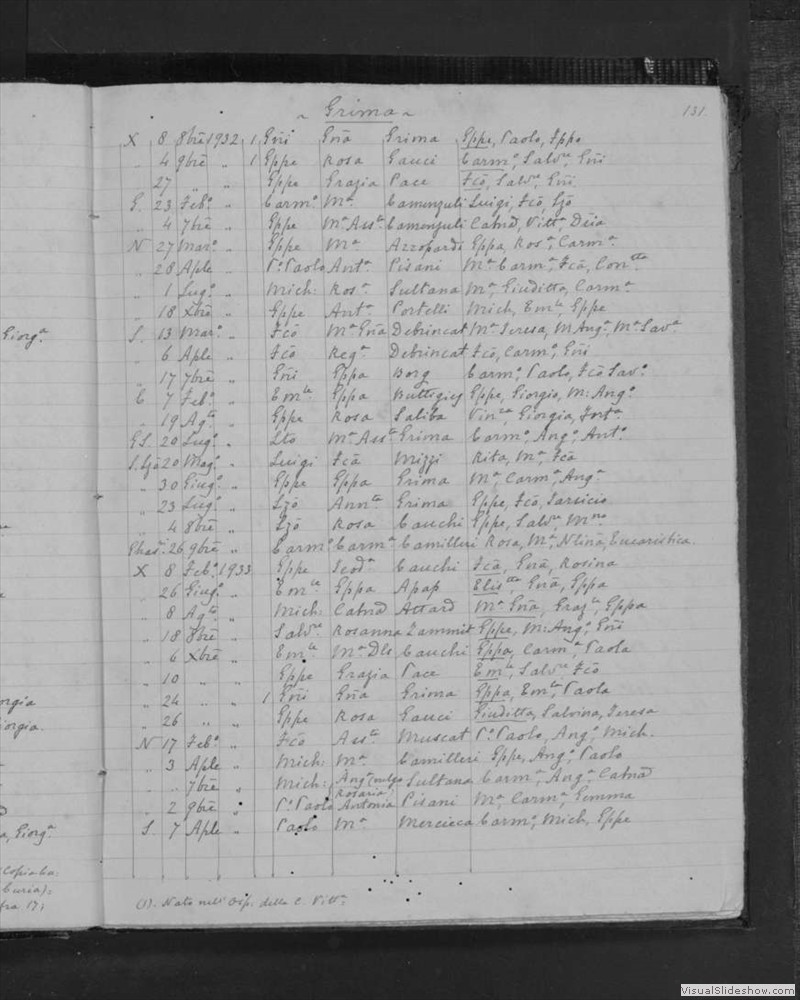 ~ Grima ~
131.
X 8 8bre 1932 1 Gñi Gña Grima Gppe, Paolo, Gppe
4 9bre " 1 Gppe Rosa Gauci Carm°, Salv.re Gñi
27 " " Gppe Grazia Pace Fcõ, Salv.re Gñi
G. 23 Feb° " Carm° M.a Camenzuli Luigi, Fcõ, Lzõ
" 4 7bre " Gppe M.a Ass.ta Camenzuli Catnã, Vitt.a
N 27 Mar° " Gppe M.a Azzopardi Gppa, Ros.a Carm.a
" 28 Aple " P.° Paolo Ant.a Pisani M.a Carm.a, Fcã, Con.tta
" 1 Lug° " Mich: Ros.a Sultana M.a, Giuditta, Carm.a
" 18 Xbre " Gppe Ant.a Portelli Mich, Em.le, Gppe
S. 13 Mar° " Fcõ M.a Gña Debrincat M.a Teresa, M. Ang.a, M.a Sav.a
" 6 Aple " Fcõ Reg.a Debrincat Fcõ, Carm°, Gñi
" 17 7bre " Gñi Gppa Borg Carm°, Paolo, Fcõ Sav°
C 7 Feb° " Em.le Gppa Buttigieg Gppe, Giorgio, M: Ang°
" 19 Ag.to " Gppe Rosa Saliba Vin.za, Giorgia, Fort.a
GS. 20 Lug° " M.a Ass.ta Grima Carm°, Ang°, Ant°
S. Lzõ 20 Mag° " Luigi Fcã Mizzi Rita, M.a, Fcã
" 30 Giug° " Gppe Gppa Grima M.a, Carm.a, Ang.a
" 23 Lug° " Lzõ Ann.ta Grima Gppe, Fcõ, Tarsicio
" 4 8bre " Lzõ Rosa Cauchi Gppe, Salv.re
26 9bre " Carm° Carm.a Camilleri Rosa, M.a, Eucaristica
X 8 Feb° 1933 Gppe Teod.a Cauchi Fcã, Gña, Rosina
" 26 Giug° " Em.le Gppa Apap Elis.tta, Gña, Gppa
" 8 Ag.to " Mich: Catnã Attard M.a Gña, Graz.a, Gppa
" 18 8bre " Salv.re Rosanna Zammit Gppe, M: Ang°, Gñi
" 6 Xbre " Em.le M.a Dls Cauchi Gppa, Carm.a, Paola
" 10 " " Gppe Grazia Pace Em.le, Salv.re, Fcõ
" 24 " " 1 Gñi Gña Grima Gppa, Em.la, Paola
" 26 " " Gppe Rosa Gauci Giuditta, Salvina, Teresa
N 17 Feb° " Fcõ Ass.ta Muscat P.° Paolo, Ang°, Mich.
" 3 Aple " Mich: M.a Camilleri Gppe, Ang°, Paolo
" " 7bre " Mich: Ang.a (vulgo Rosaria) Sultana Carm.a, Ang.a, Catnã
" 2 9bre " P.° Paolo Antonia Pisani M.a, Carm.a, Gemma
S. 7 Aple " Paolo M.a Mercieca Carm°, Mich, Gppe
(1). Nato nell' Osp: della C. Vitt.a
Giorg.a
orgia
iorgia.
a, Giorg.a
VisualSlideshow.com